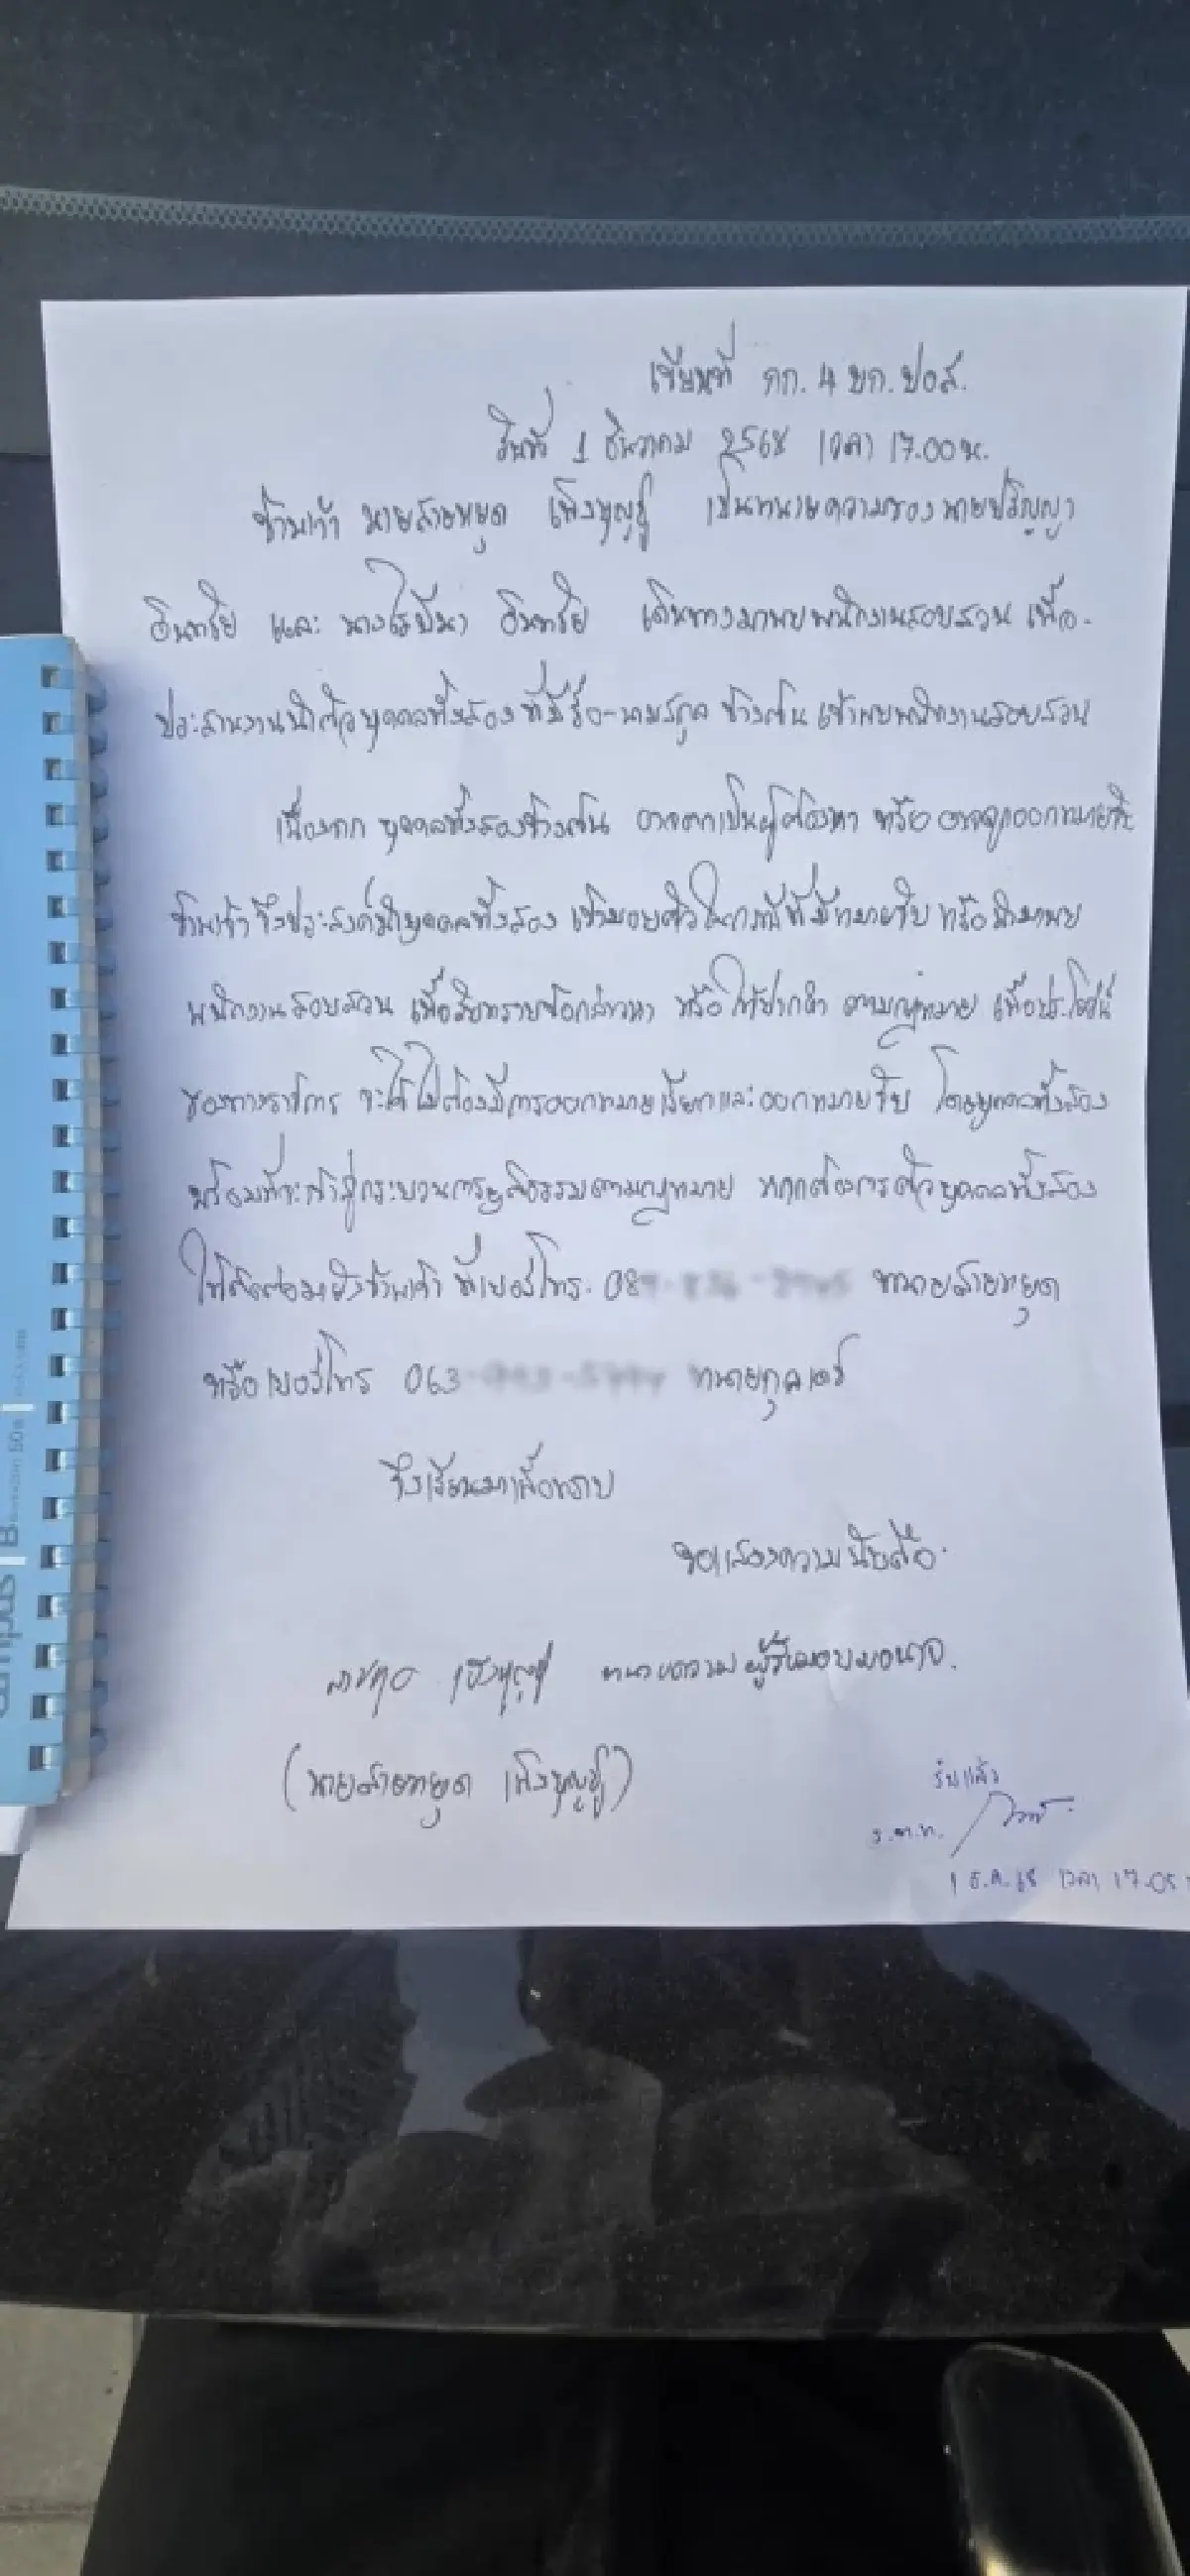 เขียนที่ กก. 4 บก. ปอศ.
วันที่ 1 ธันวาคม 2568 เวลา 17.00 น.
ข้าพเจ้า นายสายหยุด เพ็งบุญชู เป็นทนายความของ นายปริญญา
อินทรีย์ และ นางไรบีนา อินทรีย์ เดินทางมาพบพนักงานสอบสวน เพื่อ
ประสานงานนำตัวบุคคลทั้งสองที่มีชื่อ-นามสกุล ข้างต้น เข้าพบพนักงานสอบสวน
เนื่องจาก บุคคลทั้งสองข้างต้น อาจตกเป็นผู้ต้องหา หรืออาจถูกออกหมายจับ
ข้าพเจ้า จึงประสงค์นำบุคคลทั้งสอง เข้ามอบตัวในกรณีที่มีหมายจับ หรือนำมาพบ
พนักงานสอบสวน เพื่อรับทราบข้อกล่าวหา หรือ ให้ปากคำ ตามกฎหมาย เพื่อประโยชน์
ของทางราชการ จะได้ไม่ต้องมีการออกหมายเรียกและออกหมายจับ โดยบุคคลทั้งสอง
พร้อมที่จะเข้าสู่กระบวนการยุติธรรมตามกฎหมาย หากต้องการตัวบุคคลทั้งสอง
ให้ติดต่อมายังข้าพเจ้า ที่เบอร์โทร. 08 ทนายสายหยุด
หรือ เบอร์โทร 063 ทนาย
จึงเรียนมาเพื่อทราบ
ขอแสดงความนับถือ.
สายหยุด เพ็งบุญชู ทนายความ ผู้รับมอบอำนาจ.
(นายสายหยุด เพ็งบุญชู)
รับแล้ว
ร.ต.ท.
1 ธ.ค. 68 เวลา 17.05